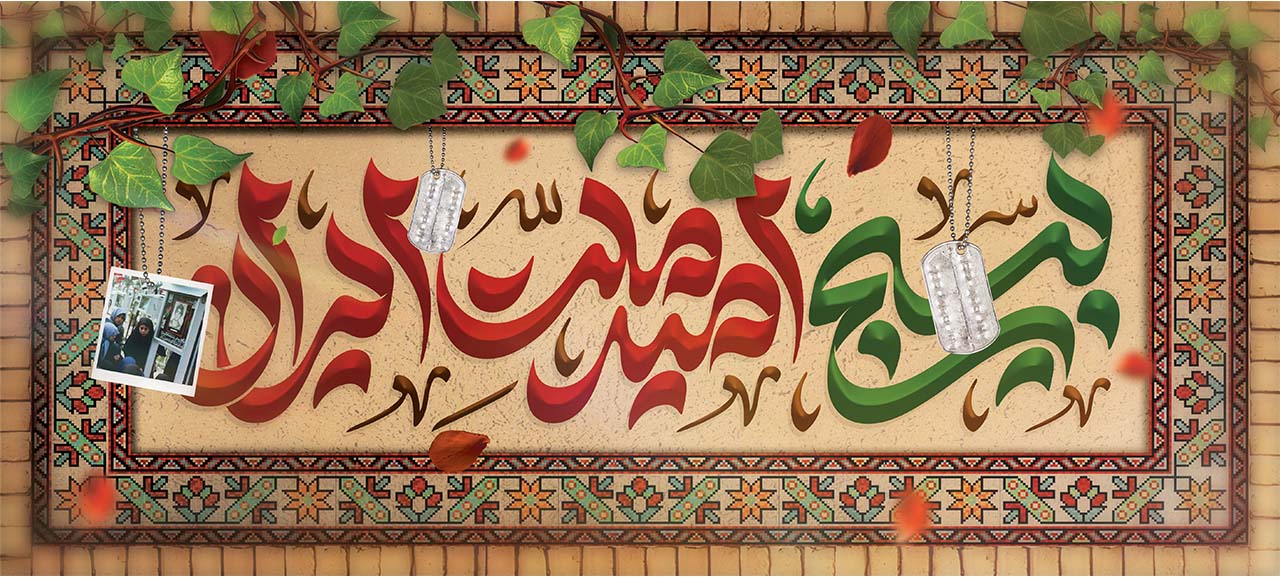 بسیج امید ملت ایران